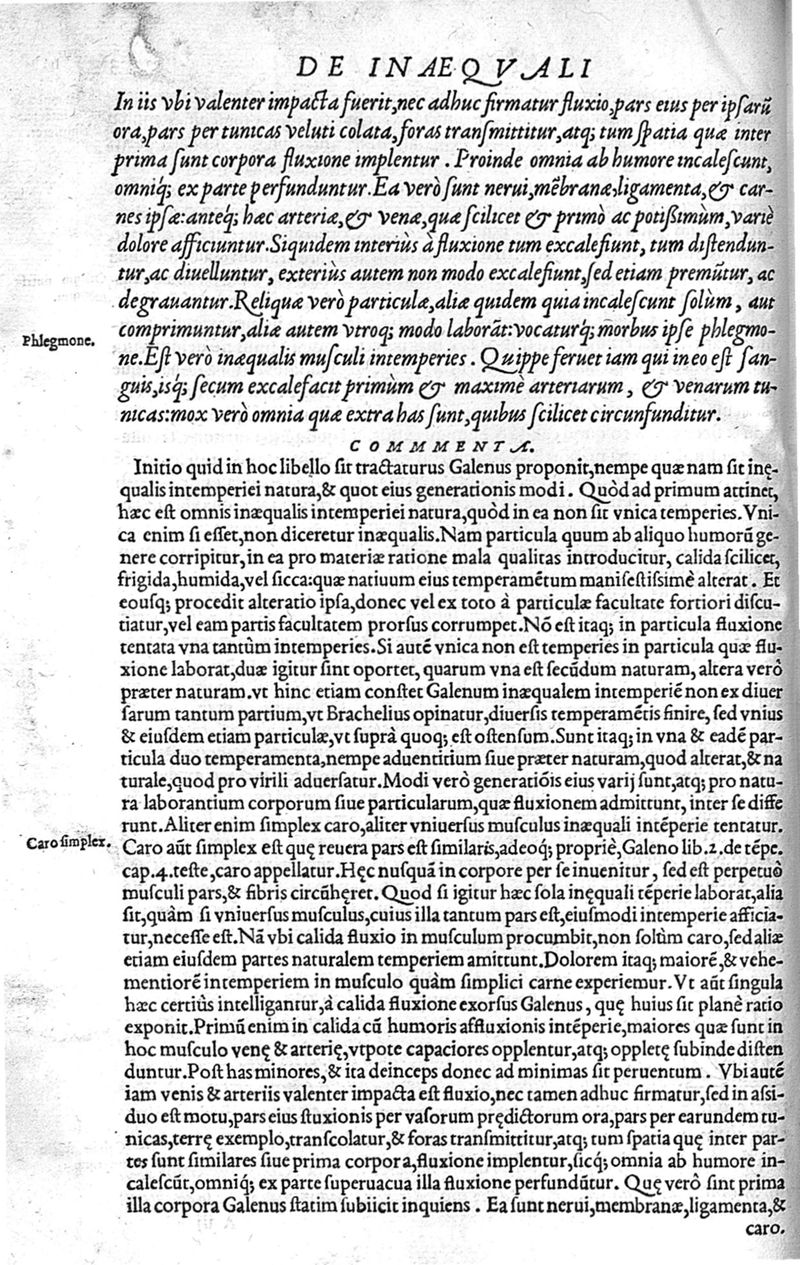 DE INAEQVALI
In iis vbi valenter impacta fuerit,nec adhuc firmatur fluxio,pars eius per ipsarũ
ora,pars per tunicas veluti colata,foras transmittitur,atq; tum spatia quæ inter
prima sunt corpora fluxione implentur . Proinde omnia ab humore incalescunt,
omniq; ex parte perfunduntur.Ea verò sunt nerui,mẽbranæ,ligamenta,& car-
nes ipsæ:anteq; hæc arteriæ,& venæ,quæ scilicet & primò ac potißimùm,variè
dolore afficiuntur.Siquidem interiùs à fluxione tum excalefiunt, tum distendun-
tur,ac diuelluntur, exteriùs autem non modo excalefiunt,sed etiam premũtur, ac
degrauantur.Reliquæ verò particulæ,aliæ quidem quia incalescunt solùm, aut
comprimuntur,aliæ autem vtroq; modo laborãt:vocaturq; morbus ipse phlegmo-
Phlegmone.
ne.Est verò inæqualis musculi intemperies . Quippe feruet iam qui in eo est san-
guis,isq; secum excalefacit primùm & maximè arteriarum, & venarum tu-
nicas:mox verò omnia quæ extra has sunt,quibus scilicet circunfunditur.
COMMENTA.
Initio quid in hoc libello sit tractaturus Galenus proponit,nempe quæ nam sit inę-
qualis intemperiei natura,& quot eius generationis modi . Quòd ad primum attinet,
hæc est omnis inæqualis intemperiei natura,quòd in ea non sit vnica temperies.Vni-
ca enim si esset,non diceretur inæqualis.Nam particula quum ab aliquo humorũ ge-
nere corripitur,in ea pro materiæ ratione mala qualitas introducitur, calida scilicet,
frigida,humida,vel sicca:quæ natiuum eius temperamẽtum manifestissimè alterat . Et
eousq; procedit alteratio ipsa,donec vel ex toto à particulæ facultate fortiori discu-
tiatur,vel eam partis facultatem prorsus corrumpet.Nõ est itaq; in particula fluxione
tentata vna tantùm intemperies.Si autẽ vnica non est temperies in particula quæ flu-
xione laborat,duæ igitur sint oportet, quarum vna est secũdum naturam, altera verò
præter naturam.vt hinc etiam constet Galenum inæqualem intemperiẽ non ex diuer
sarum tantum partium,vt Brachelius opinatur,diuersis temperamẽtis finire, sed vnius
& eiusdem etiam particulæ,vt suprà quoq; est ostensum.Sunt itaq; in vna & eadẽ par-
ticula duo temperamenta,nempe aduentitium siue præter naturam,quod alterat,& na
turale,quod pro virili aduersatur.Modi verò generatiõis eius varij sunt,atq; pro natu-
ra laborantium corporum siue particularum,quæ fluxionem admittunt, inter se diffe
runt.Aliter enim simplex caro,aliter vniuersus musculus inæquali intẽperie tentatur.
Caro simplex.
Caro aũt simplex est quę reuera pars est similaris,adeoq; propriè,Galeno lib.2.de tẽpe.
cap.4.teste,caro appellatur.Hęc nusquã in corpore per se inuenitur, sed est perpetuò
musculi pars,& fibris circũhęret. Quod si igitur hæc sola inęquali tẽperie laborat,alia
sit,quàm si vniuersus musculus,cuius illa tantum pars est,eiusmodi intemperie afficia-
tur,necesse est.Nã vbi calida fluxio in musculum procumbit,non solùm caro,sed aliæ
etiam eiusdem partes naturalem temperiem amittunt.Dolorem itaq; maiorẽ,& vehe-
mentiorẽ intemperiem in musculo quàm simplici carne experiemur.Vt aũt singula
hæc certiùs intelligantur,à calida fluxione exorsus Galenus, quę huius sit planè ratio
exponit.Primũ enim in calida cũ humoris affluxionis intẽperie,maiores quæ sunt in
hoc musculo venę & arterię,vtpote capaciores opplentur,atq; oppletę subinde disten
duntur.Post has minores,& ita deinceps donec ad minimas sit peruentum . Vbi autẽ
iam venis & arteriis valenter impacta est fluxio,nec tamen adhuc firmatur,sed in assi-
duo est motu,pars eius fluxionis per vasorum prędictorum ora,pars per earundem tu-
nicas,terrę exemplo,transcolatur,& foras transmittitur,atq; tum spatia quę inter par-
tes sunt similares siue prima corpora,fluxione implentur,sicq; omnia ab humore in-
calescũt,omniq; ex parte superuacua illa fluxione perfundũtur. Quę verò sint prima
illa corpora Galenus statim subiicit inquiens . Ea sunt nerui,membranæ,ligamenta,&
caro.